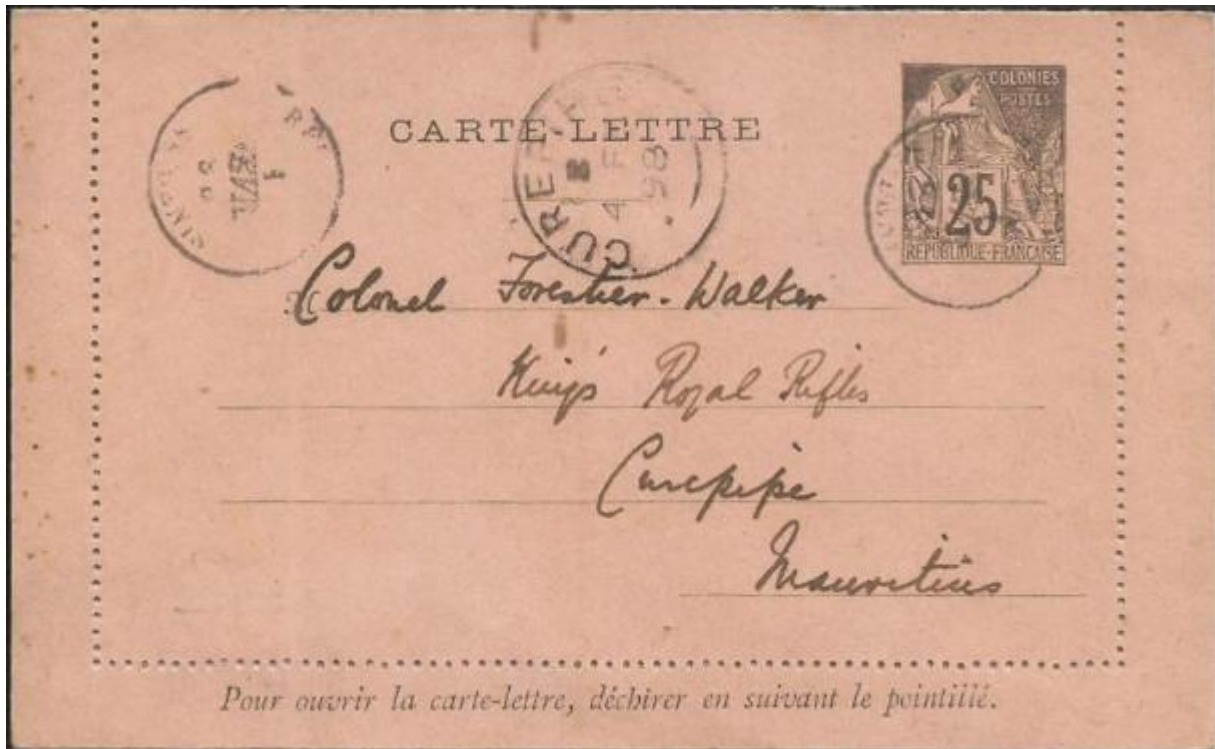 COLONIES
POSTES
CARTE-LETTRE
25
REPUBLIQUE-FRANCAISE
CUREPIPE
B
4
98
Colonel Forestier-Walker
King's Royal Rifles
Curepipe
Mauritius
Pour ouvrir la carte-lettre, déchirer en suivant le pointillé.